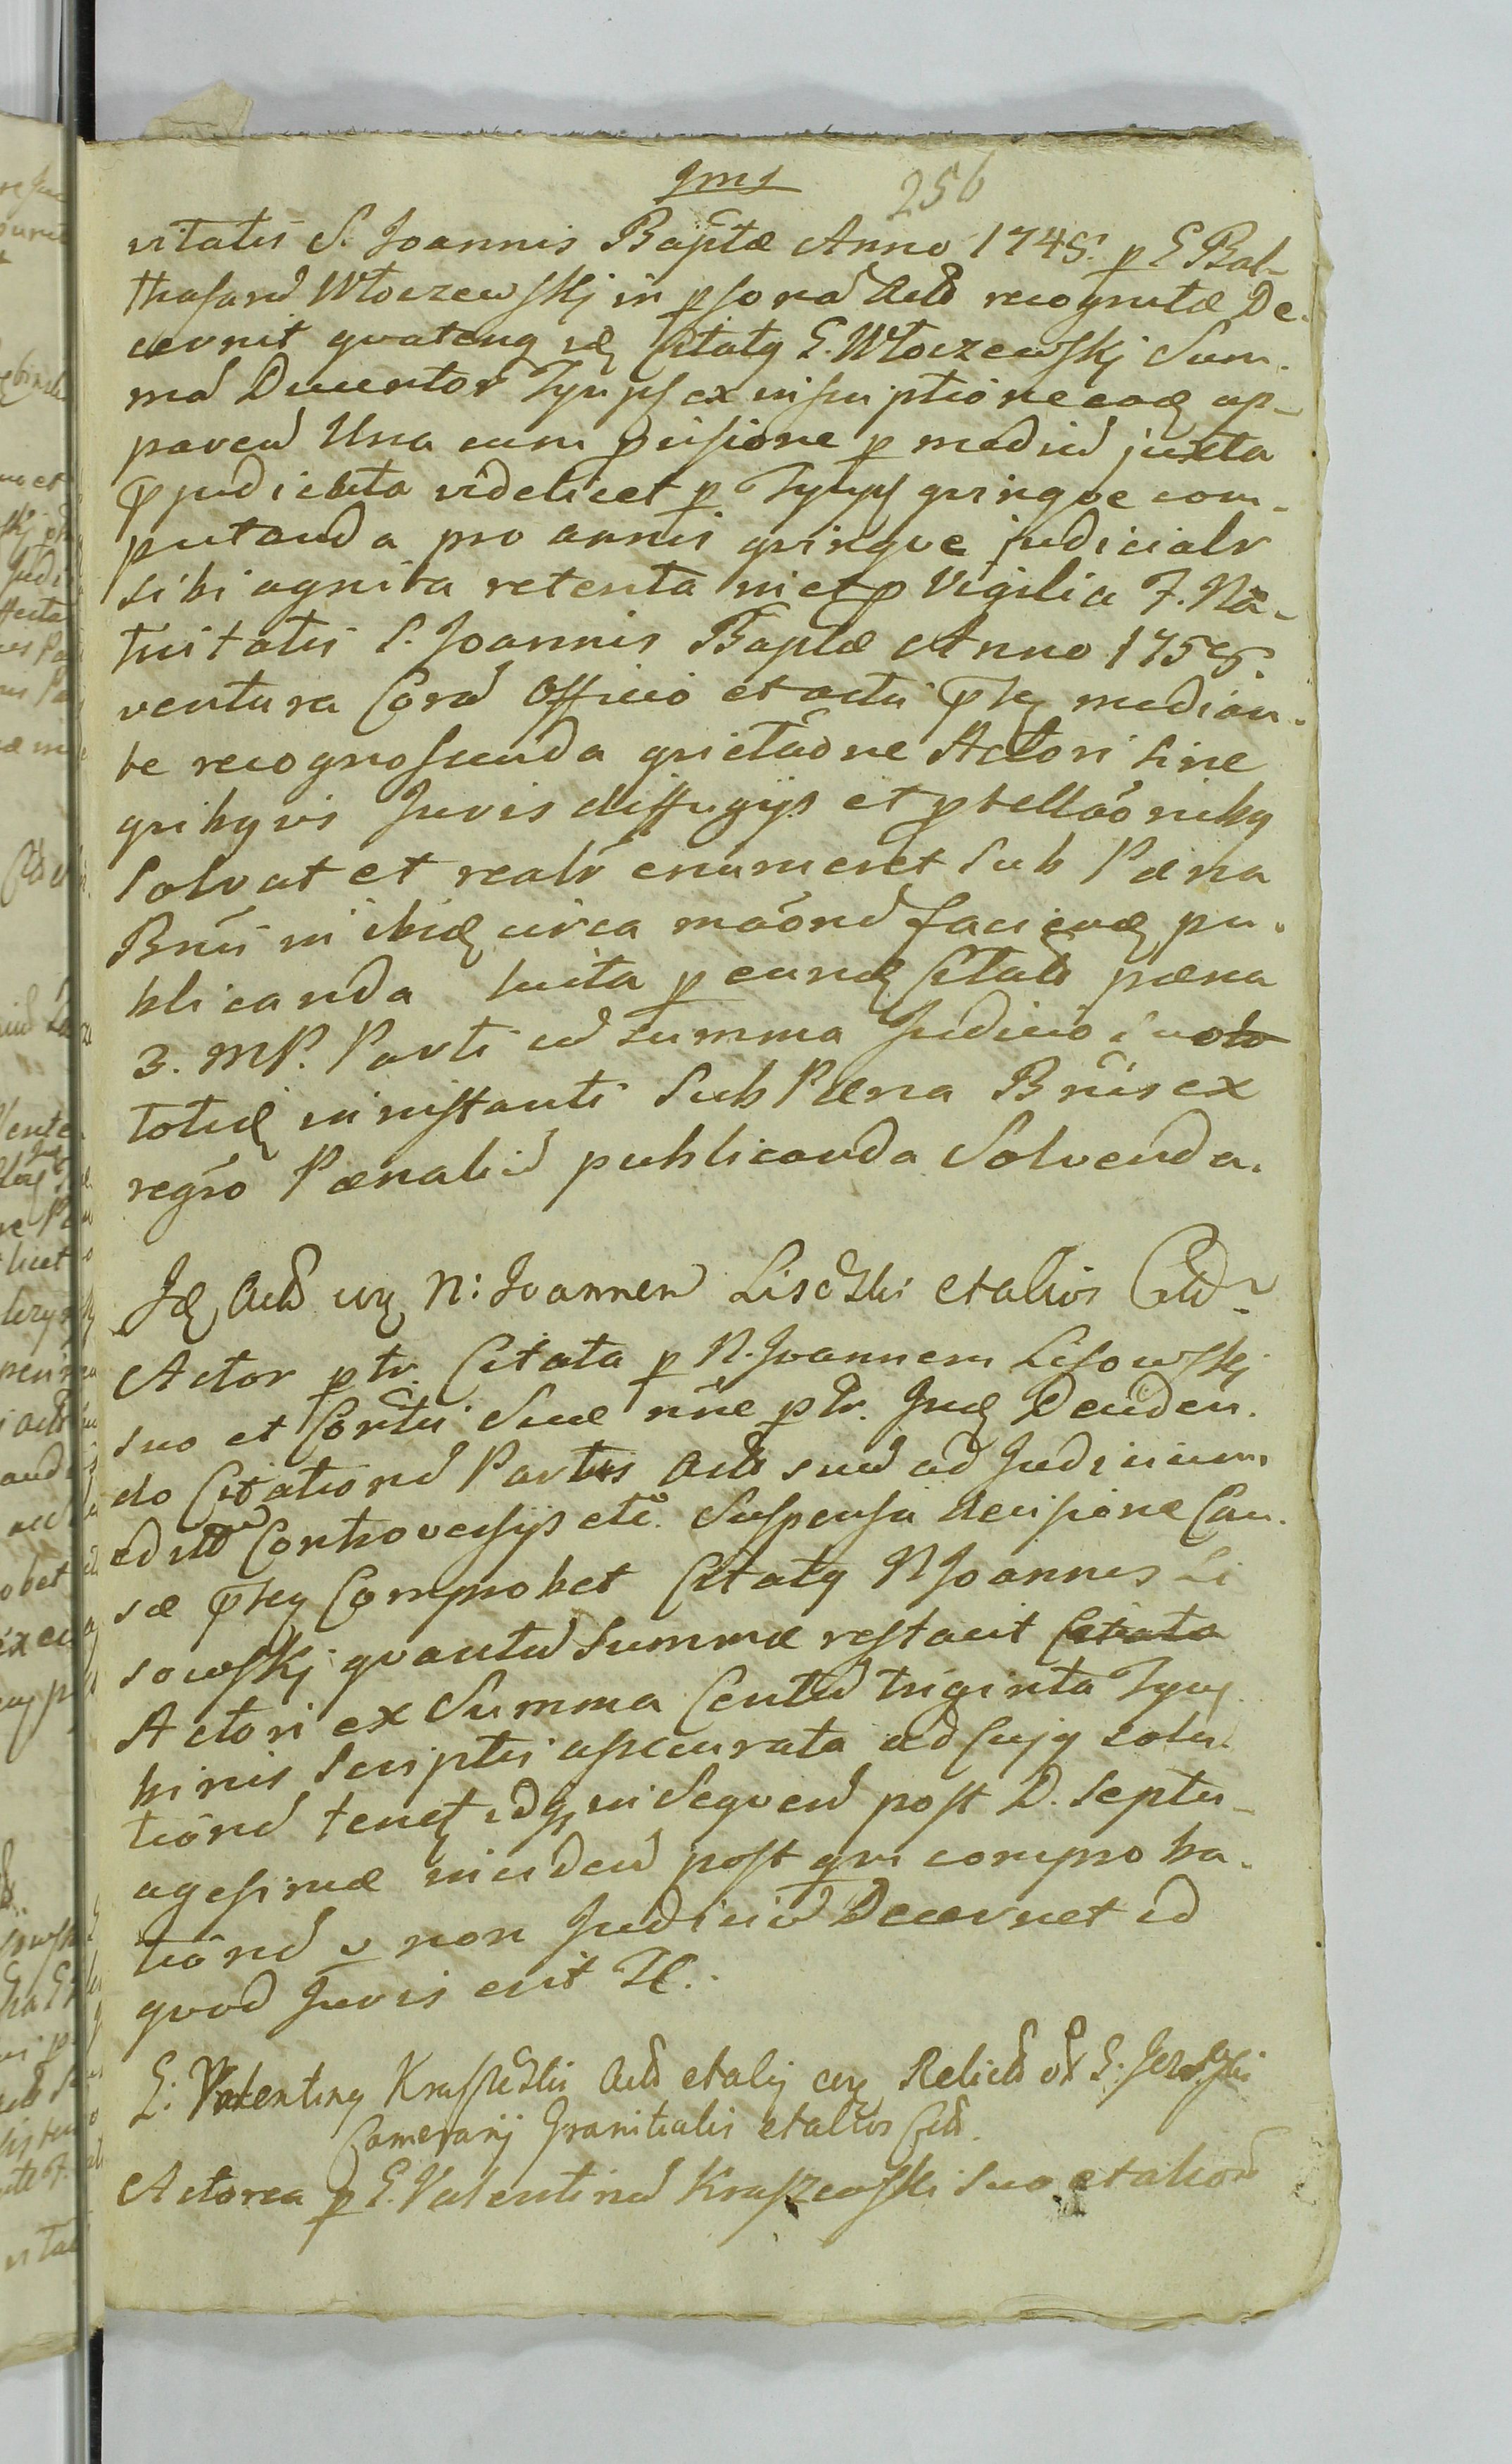 256
vitatis S. Joannis Baptæ Anno 1745. p G Bal-
thasard Włoczewskj in psonad Actd recognitæ De-
cernit quatenq idę Citatq G. Włoczewskj Sum-
mad Ducentor Tynpf ex inscriptione eadę ap-
parend Una cum pvisione p mediud juxta
pjudicata videlicet p Tynpf quinqve com-
putanda pro annis quinqve judicialr
sibi agnita retenta in et p Vigilia F. Na-
tivitatis S. Joannis Baptæ Anno 1755.
ventura Corad Officio et actis pntę median-
te recognoscenda qvietaōne Actori sine
qvibqvis Juris diffugijs et pbellaōnibq
Solvat et realr enumeret Sub Pæna
Bnis in ibidę circa maōnd faciendę pu-
blicanda luita p eundę Citatd pæna
3. MP. Parti ad summa Judicio
totidę in instanti Sub Pæna Bnis ex
regrō Pænaliud publicanda Solvenda.
Idę Actd cum N: Joannem Lisowski et alios Citd
Actor ptr. Citata p N. Joannem Lisowskj
suo et Cortis Suæ nne ptr. Judę Deuden-
do Citationd Partis Actd suad ad Judicium
Controversijs etc. Suspensa decisione Cau-
sæ pntę Comprobet Citatq N Joannes Li
sowskj qvantud Summæ restavit Citata
Actori ex Summa Centud triginta Tynf
binis Scriptis assecurata ad cujq solu-
tiōnd tenet idq in Seqvend post D. Septu-
agesimæ incidend post qvi comproba-
tiōnd v non Judiciud Decernet id
qvod Juris erit
G. Valentinq Kraszewski Actd et alij cum Relictd
Camerarij Granitialis et alios Citd.
Actorea p G. Valentinud Kraszewski Suo et alior